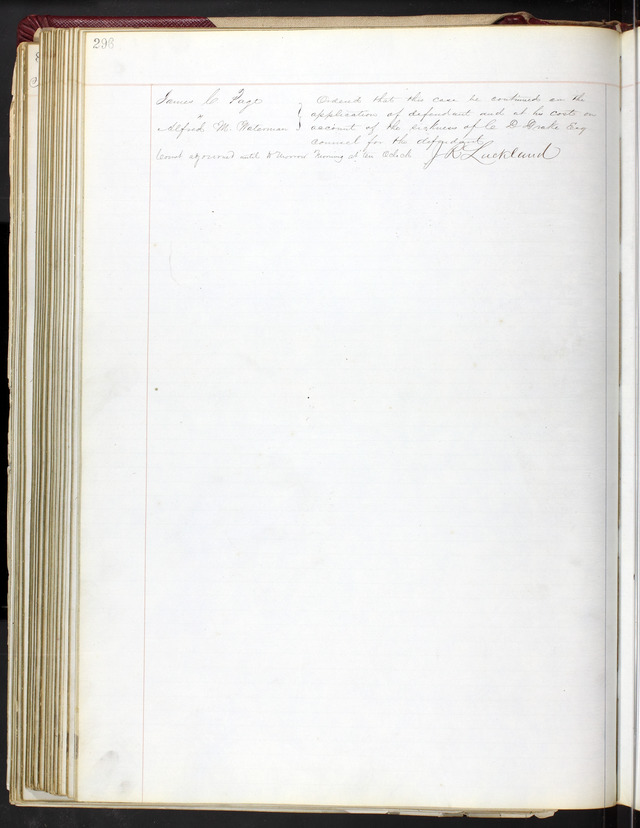 296
James C Page
"
Alfred M Waterman
Ordered that this case be continued on the
application of defendant and at his costs on
account of the sickness of C D Drake Esq
counsel for the defendant
Court adjourned until to morrow morning at ten Oclock J R Lackland